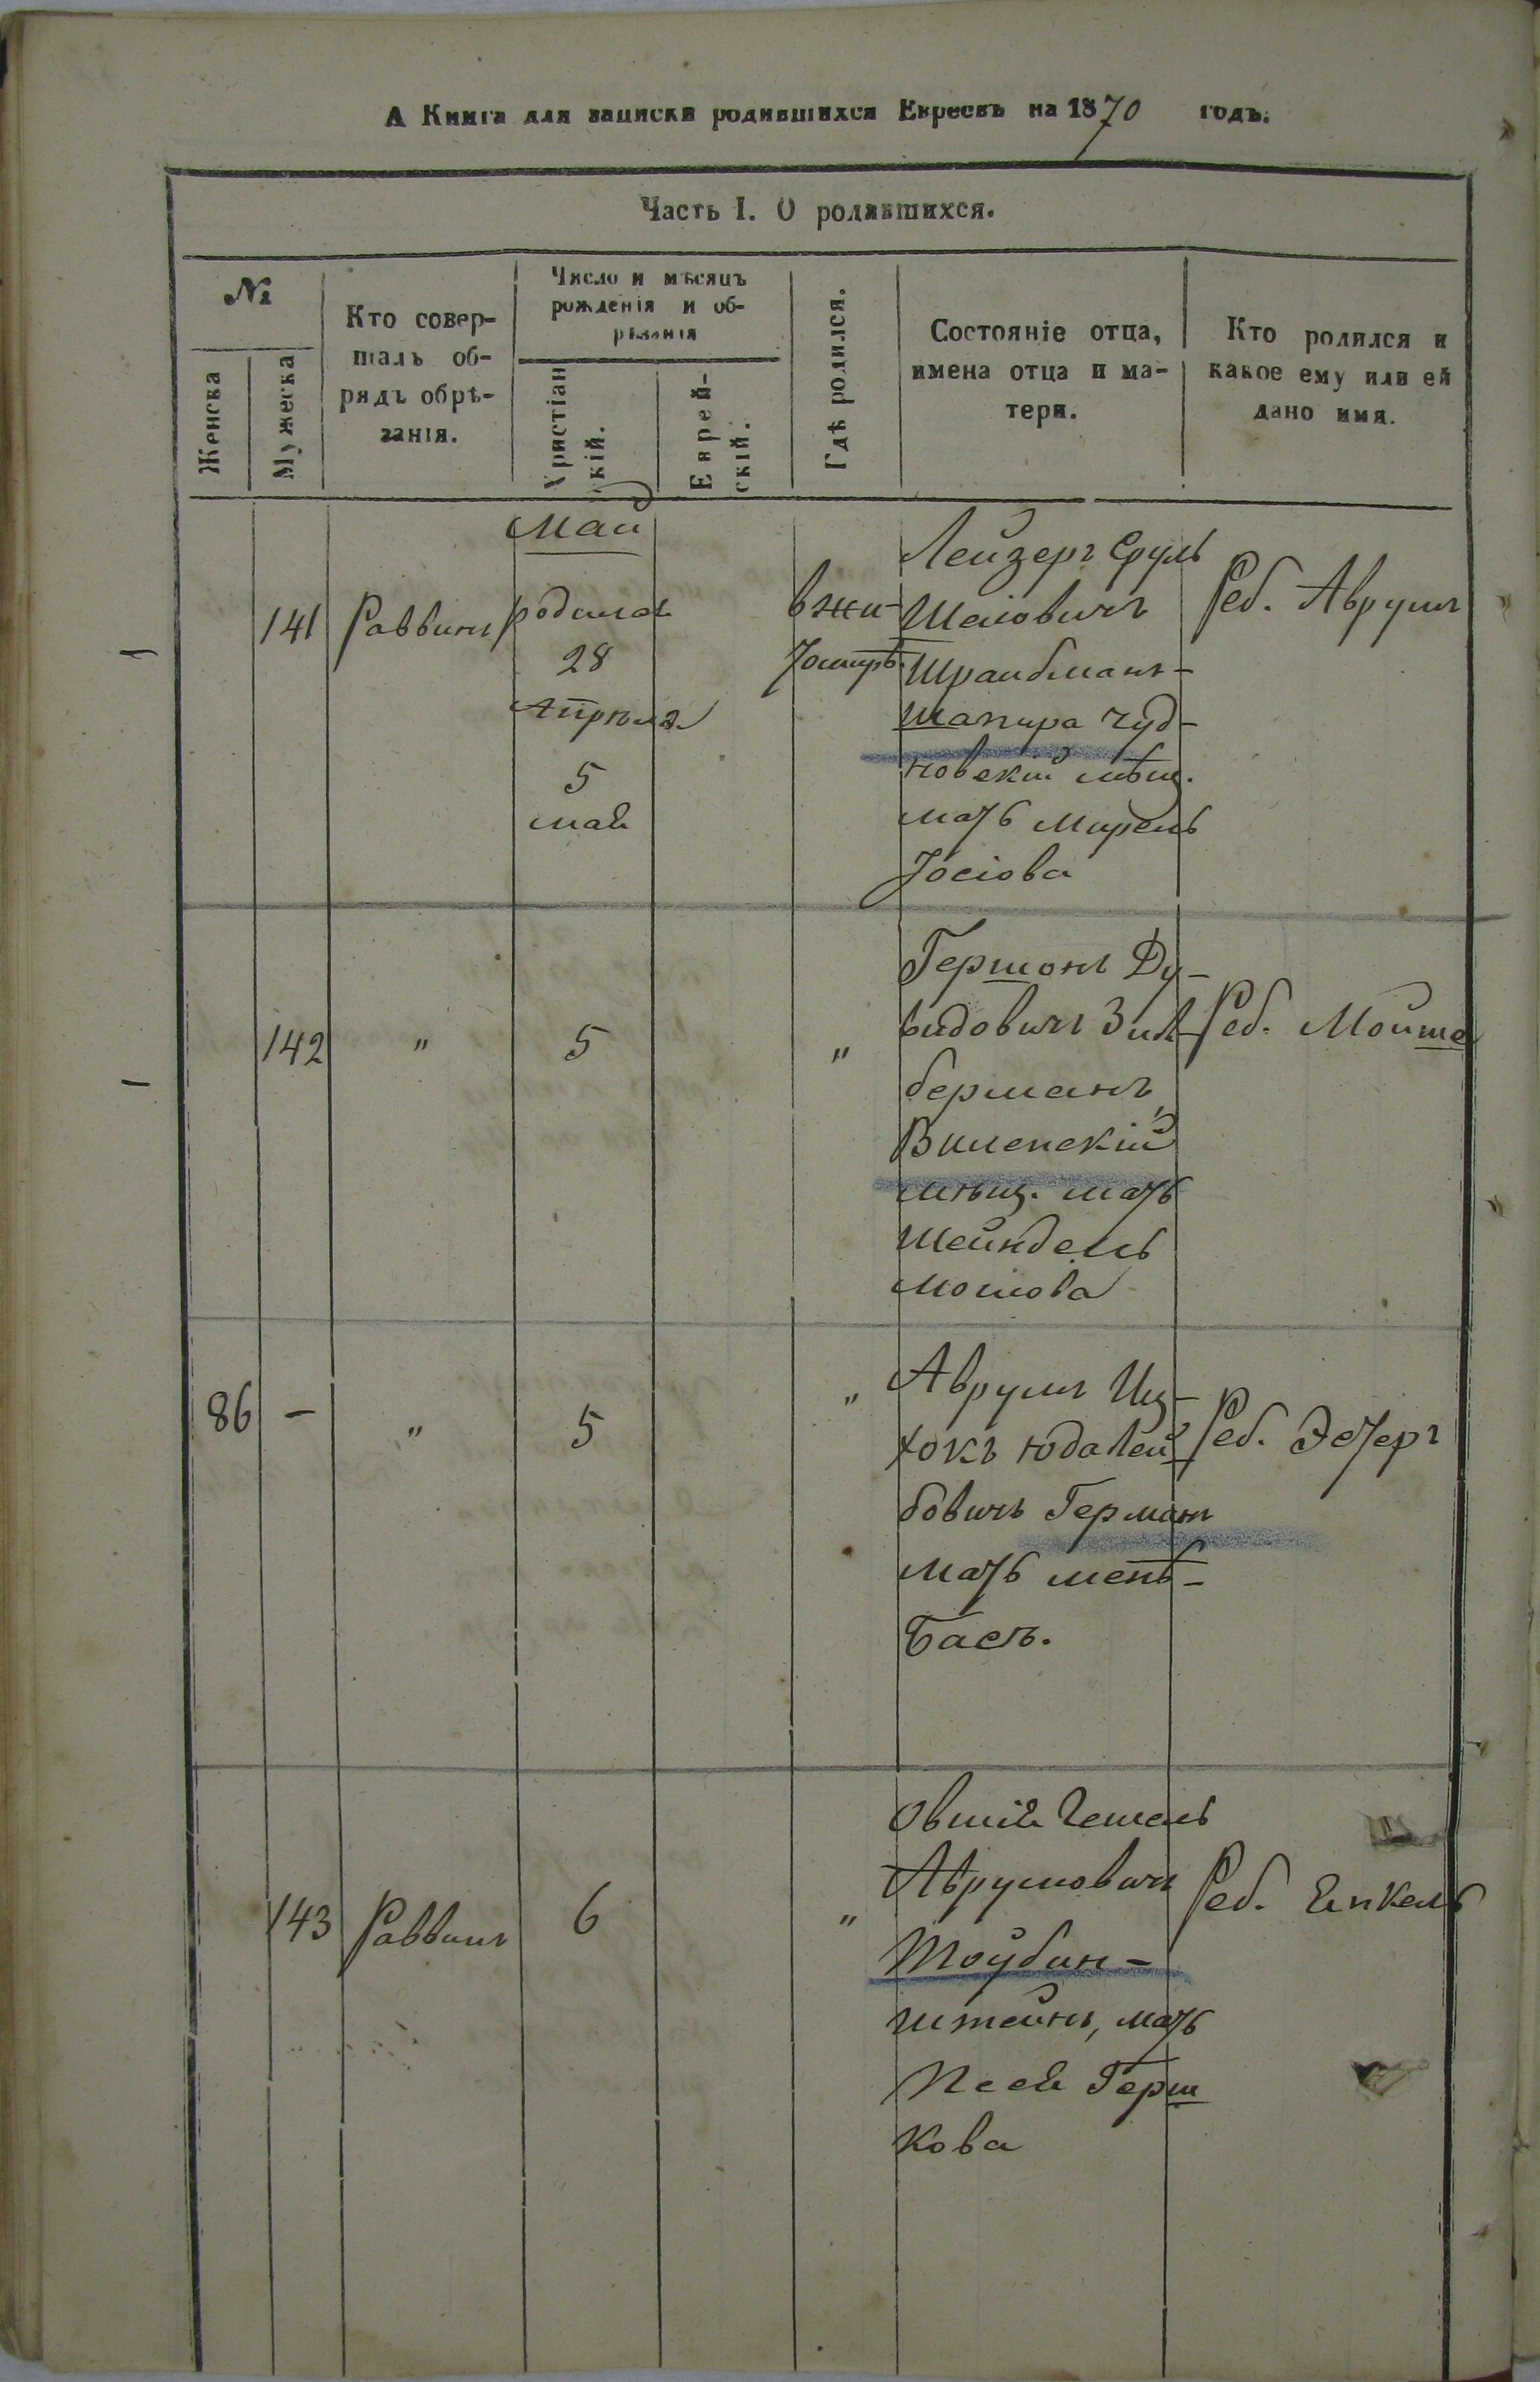 А Книга для записки родившихся Евреевъ на 1870 годъ.
Часть I. О родившихся.
№
Женска
Мужеска
Кто совер-
шалъ об-
рядъ обрѣ-
занія.
Число и мѣсяцъ
рожденія и об-
рѣзанія
Христіан
скій.
Еврей-
скій.
Гдѣ родился.
Состояніе отца,
имена отца и ма-
тери.
Кто родился и
какое ему или ей
дано имя.
Май
141
Раввинъ
родился
28
Апрѣля
5
мая
в жи-
томирѣ.
Лейзеръ Сруль
Шаіовичъ
Шраибманъ-
Шапира чуд-
новскій мѣщ.
мать Мирель
Іосіова
Реб. Аврумъ
142
"
5
"
Гершонъ Ду-
видовичъ Зиль-
берманъ
Виленскій
мѣщ. мать
Шейндель
Мошова
Реб. Мойше
86
—
"
5
"
Аврумъ Иц-
хокъ Юда Лей-
бовичъ Германъ
мать
Басъ.
Реб. Эстеръ
143
Раввинъ
6
"
Овшія Гешель
Аврумовичъ
Тойбин-
штейнъ, мать
Песя Герш
кова
Реб. Янкель